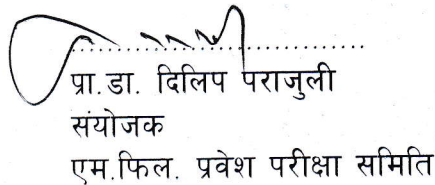 प्रा.डा. दिलिप पराजुली
संयोजक
एम.फिल. प्रवेश परीक्षा समिति